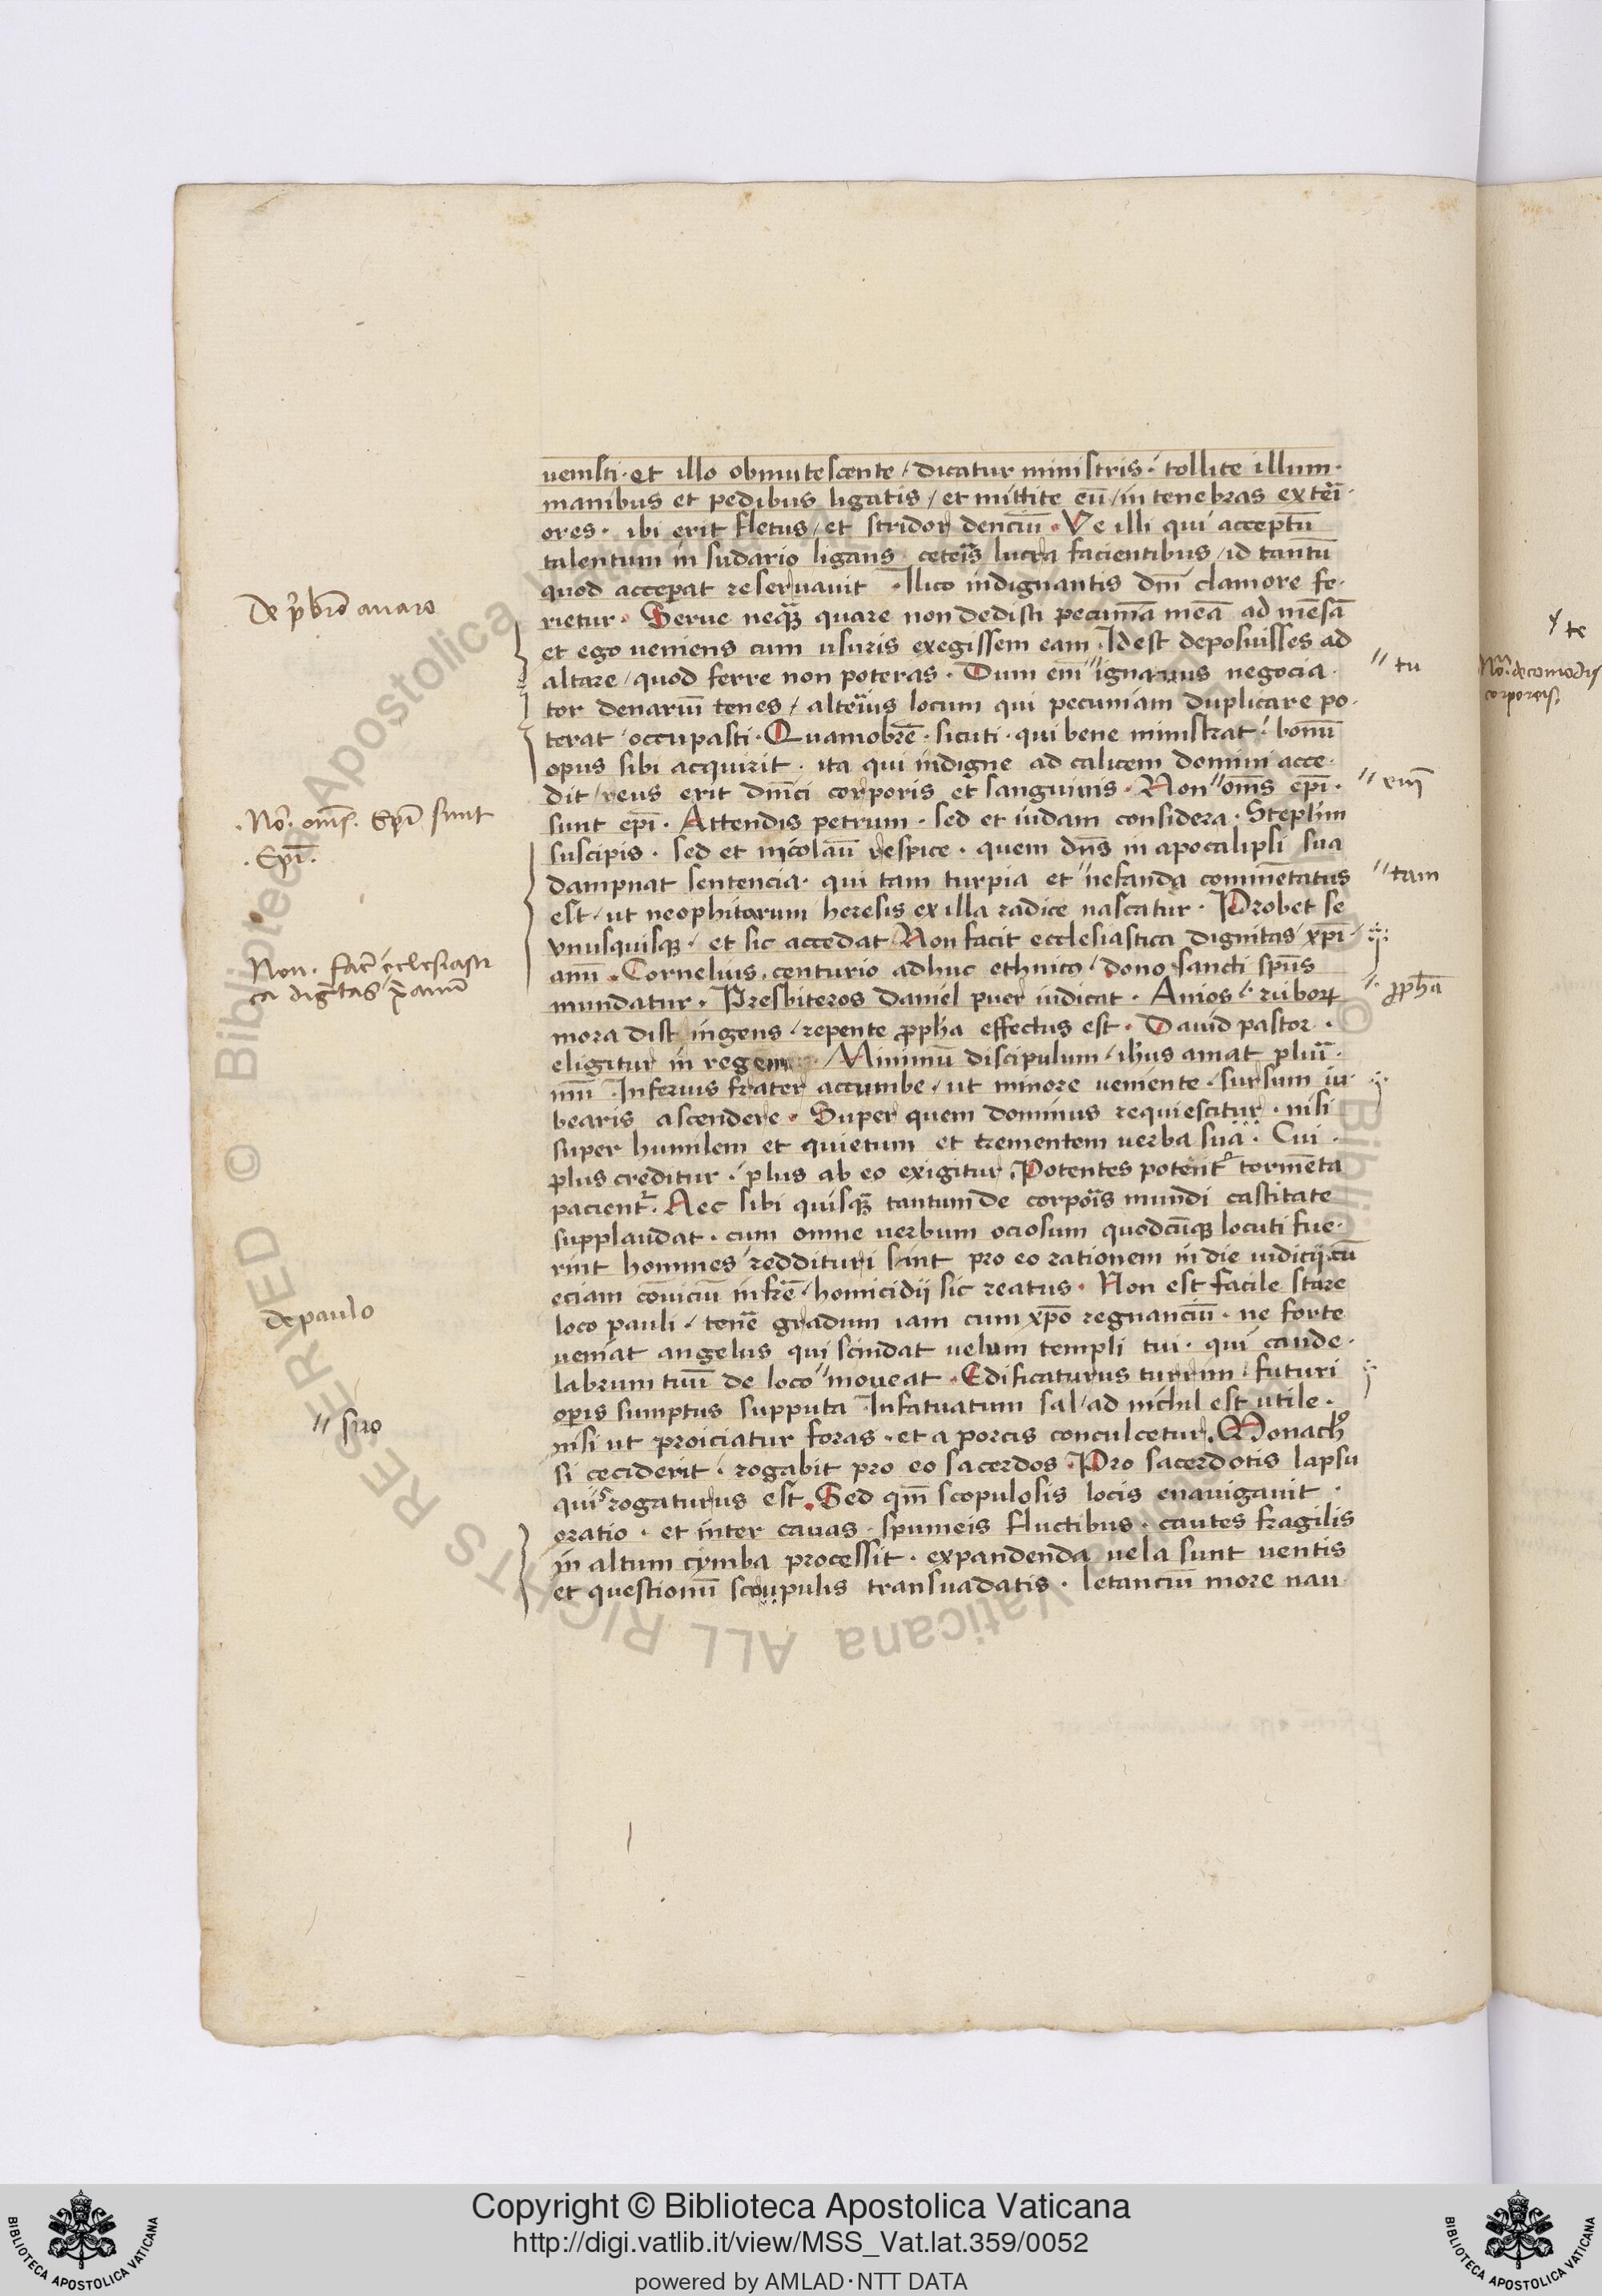 uenisti · et illo obmutescente / dicatur ministris · tollite illum ·
manibus et pedibus ligatis / et mittite eū / in tenebras exteri
ores · ibi erit fletus / et stridor denciū · Ve illi qui acceptū
talentum in sudario ligans · ceteris lucra facientibus / id tantū
quod acceperat reseruauit · Ilico indignantis dn̄i clamore fe
rietur · Serue nequā quare non dedisti pecuniā meā ad mēsā
et ego ueniens cum usuris exegissem eam · Id est deposuisses ad
altare / quod ferre non poteras · Dum em̄ " ignauus negocia
tor denariū tenes / alterius locum qui pecuniam duplicare po
terat / occupasti · Quamobrē · sicuti · qui bene ministrat / bonū
opus sibi acquirit · ita qui indigne ad calicem domini acce
dit / reus erit dn̄ici corporis et sanguinis · Non " om̄s ep̄i ·
sunt ep̄i · Attendis petrum · sed et iudam considera · Stephm̄
suscipis · sed et nicolaū respice · quem dn̄s in apocalipsi sua
dampnat sentencia · qui tam turpia et " nefanda commētatus
est / ut neophitorum heresis ex illa radice nascatur · Probet se
vnusquisqꝫ / et sic accedat · Non facit ecclesiastica dignitas / xp̄i
anū · Cornelius · centurio adhuc ethnicꝰ / dono sancti sp̄us
mundatur · Presbiteros daniel puer iudicat · Amos " ruborū
mora distingens / repente ꝓpha effectus est · Dauid pastor ·
eligitur in regem · Minimū discipulum / ihūs amat pluri
mū · Inferius frater accumbe / ut minore ueniente / sursum iu
bearis ascendere · Super quem dominus requiescitur · nisi
super humilem et quietum et trementem uerba sua · Cui
plus creditur / plus ab eo exigitur · Potentes potentr̄ tormēta
pacientr̄ · Nec sibi quisqꝫ tantum de corporis mundi castitate
supplaudat · cum omne uerbum ociosum quodcūqꝫ locuti fue
rint homines / reddituri sint pro eo rationem in die iudicij · cū
eciam cōuiciū in frē / homicidij sic reatus · Non est facile stare
loco pauli / tenē gradum iam cum xp̄o regnanciū · ne forte
ueniat angelus qui scindat uelum templi tui · qui cande
labrum tuū de loco " moueat · Edificaturus turrim / futuri
oꝑis sumptus supputa · Infatuatum sal / ad nichil est utile ·
nisi ut proiciatur foras · et a porcis conculcetur · Monachꝰ
si ceciderit · rogabit pro eo sacerdos · Pro sacerdotis lapsu
quis rogaturus est · Sed qm̄ scopulosis locis enauigauit
oratio · et inter cauas · spumeis fluctibus · cautes fragilis
in altum cymba processit · expandenda uela sunt uentis
et questionū scoupulis transuadatis · letanciū more nau
De p̄sbrō auaro
No. om̄s. Ep̄i sunt
· Ep̄i ·
Non · fac̄ ecclesiasti
ca dig̅tas χ̄p̄ianū
de paulo
" suo
" tu
" em̄
" tam
ꝓphā
te
No. de comodis
corporeis
Copyright © Biblioteca Apostolica Vaticana
http://digi.vatlib.it/view/MSS_Vat.lat.359/0052
powered by AMLAD·NTT DATA
BIBLIOTECA APOSTOLICA VATICANA
BIBLIOTECA APOSTOLICA VATICANA
© Biblioteca Apostolica Vaticana ALL RIGHTS RESERVED